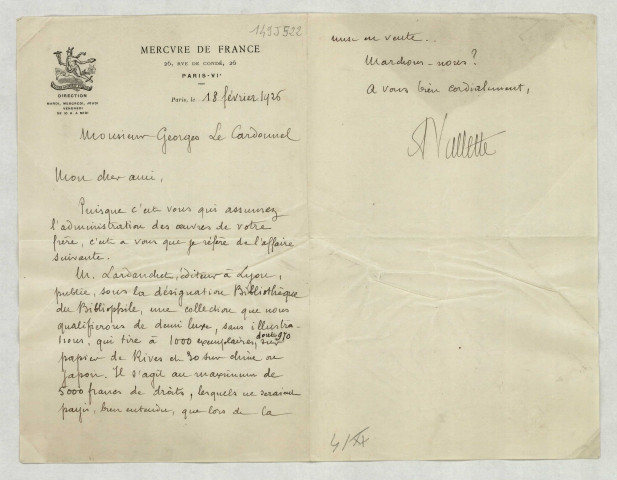 149J522
MERCVRE DE FRANCE
26, RVE DE CONDÉ, 26
PARIS-VIᵉ
DIRECTION
MARDI, MERCREDI, JEUDI
VENDREDI
DE 10 H. A MIDI
Paris, le 18 février 1926
Monsieur Georges Le Cardonnel
Mon cher ami,
Puisque c'est vous qui assumez
l'administration des œuvres de votre
frère, c'est à vous que je réfère de l'affaire
suivante.
M. Lardanchet, éditeur à Lyon,
publie, sous la désignation Bibliothèque
du Bibliophile, une collection que nous
qualifierons de demi luxe, sans illustra-
tions, qui tire à 1000 exemplaires, dont 970 sur
papier de Rives et 30 sur chine ou
japon. Il s'agit au maximum de
5000 francs de droits, lesquels ne seraient
payés, bien entendu, que lors de la
mise en vente..
Marchons-nous?
A vous bien cordialement,
A Vallette